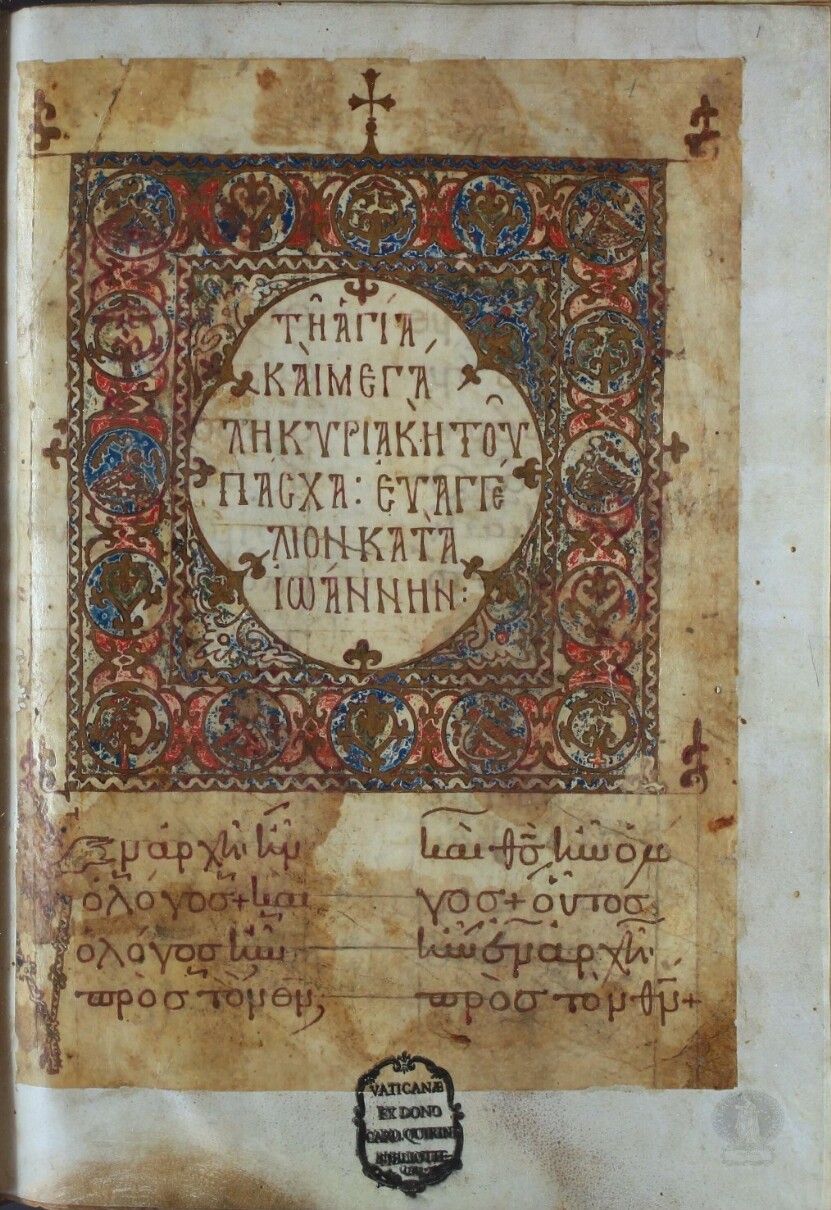 ΤΗ͂ ἉΓΊΑ
ΚΑῚ ΜΕΓΆ
ΛΗ ΚΥΡΙΑΚΗ͂ ΤΟΥ͂
ΠΆΣΧΑ: ΕΥ̓ΑΓΓΈ
ΛΙΟΝ ΚΑΤᾺ
ἸΩΆΝΝΗΝ:
Ἐν ἀρχῆ ἦν
ὁ λόγος + καὶ
ὁ λόγος ἦν
πρὸς τὸν θν̅;
καὶ θς̅ ἦν ὁ λό
γος + οὗτος
ἦν ἐν ἀρχῆ
πρὸς τὸν θν̅ +
VATICANÆ
EX DONO
CARD. QUIRINI